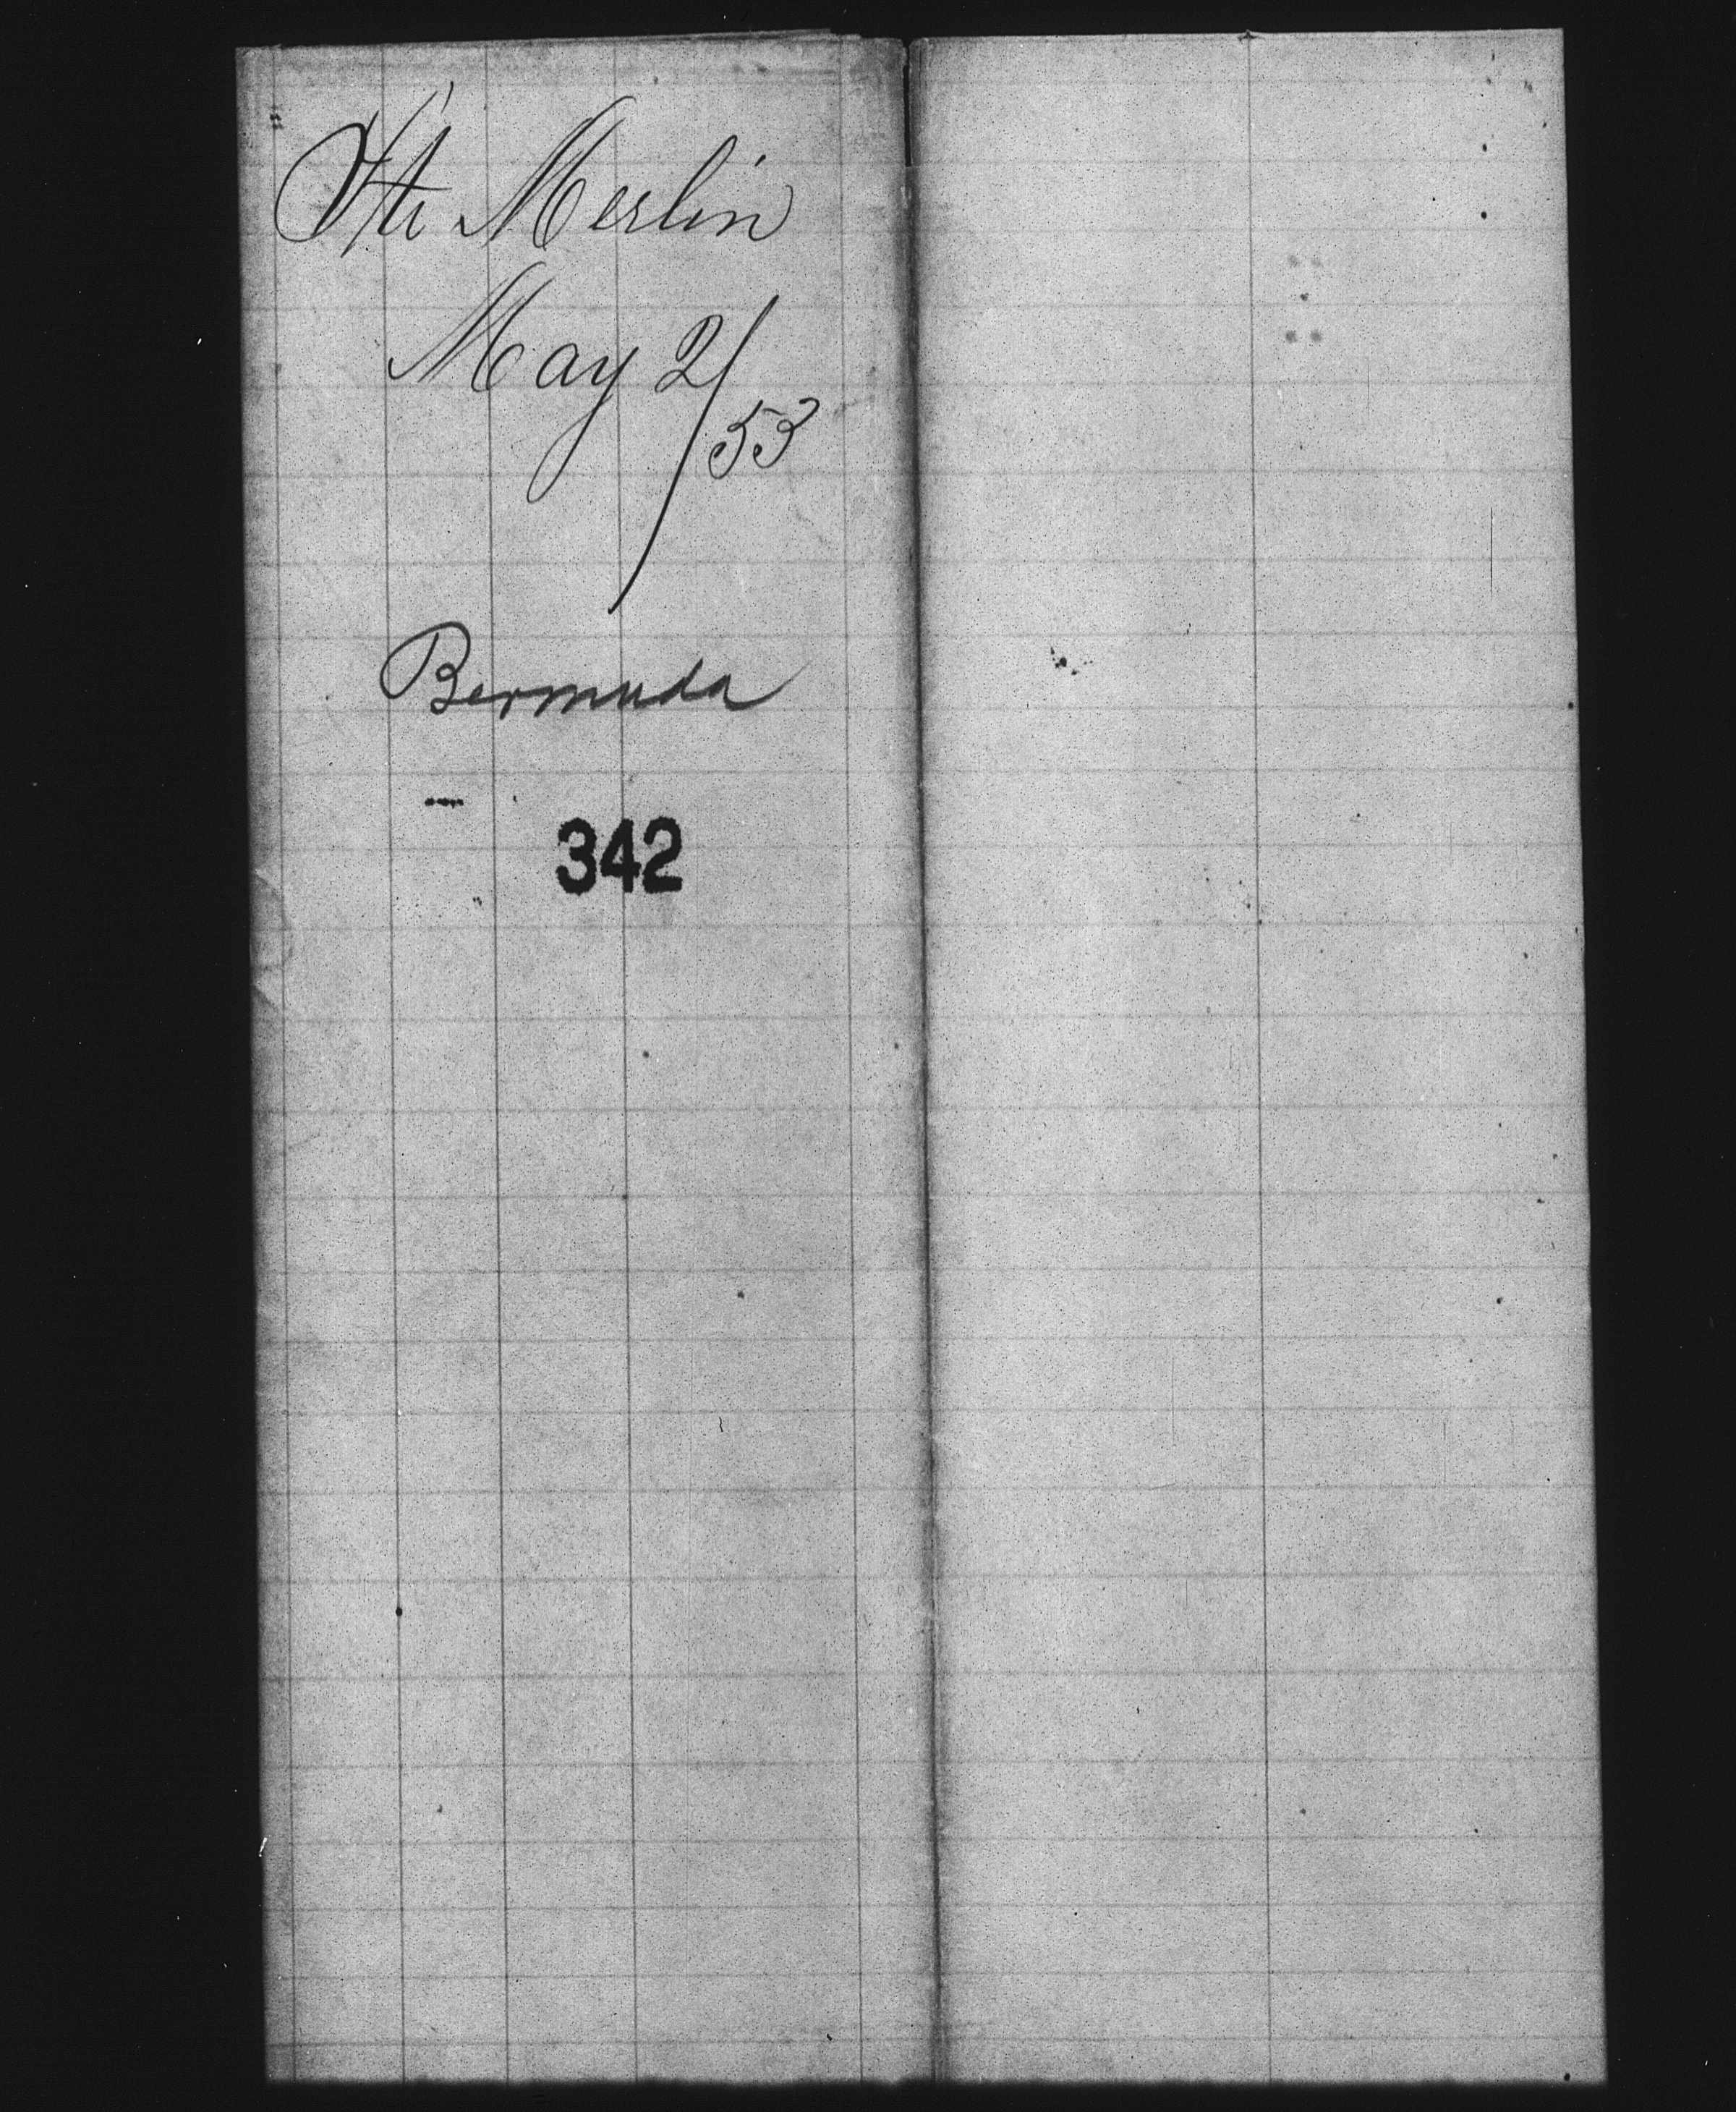 Str Merlin
May 2/53
Bermuda
342